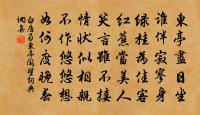 東亭盡日坐
誰伴寂寥身
綠桂為佳客
紅蕉當美人
笑言雖不接
情狀似相親
不作悠悠想
如何度晚春
白居易東亭閒望詞典
網集